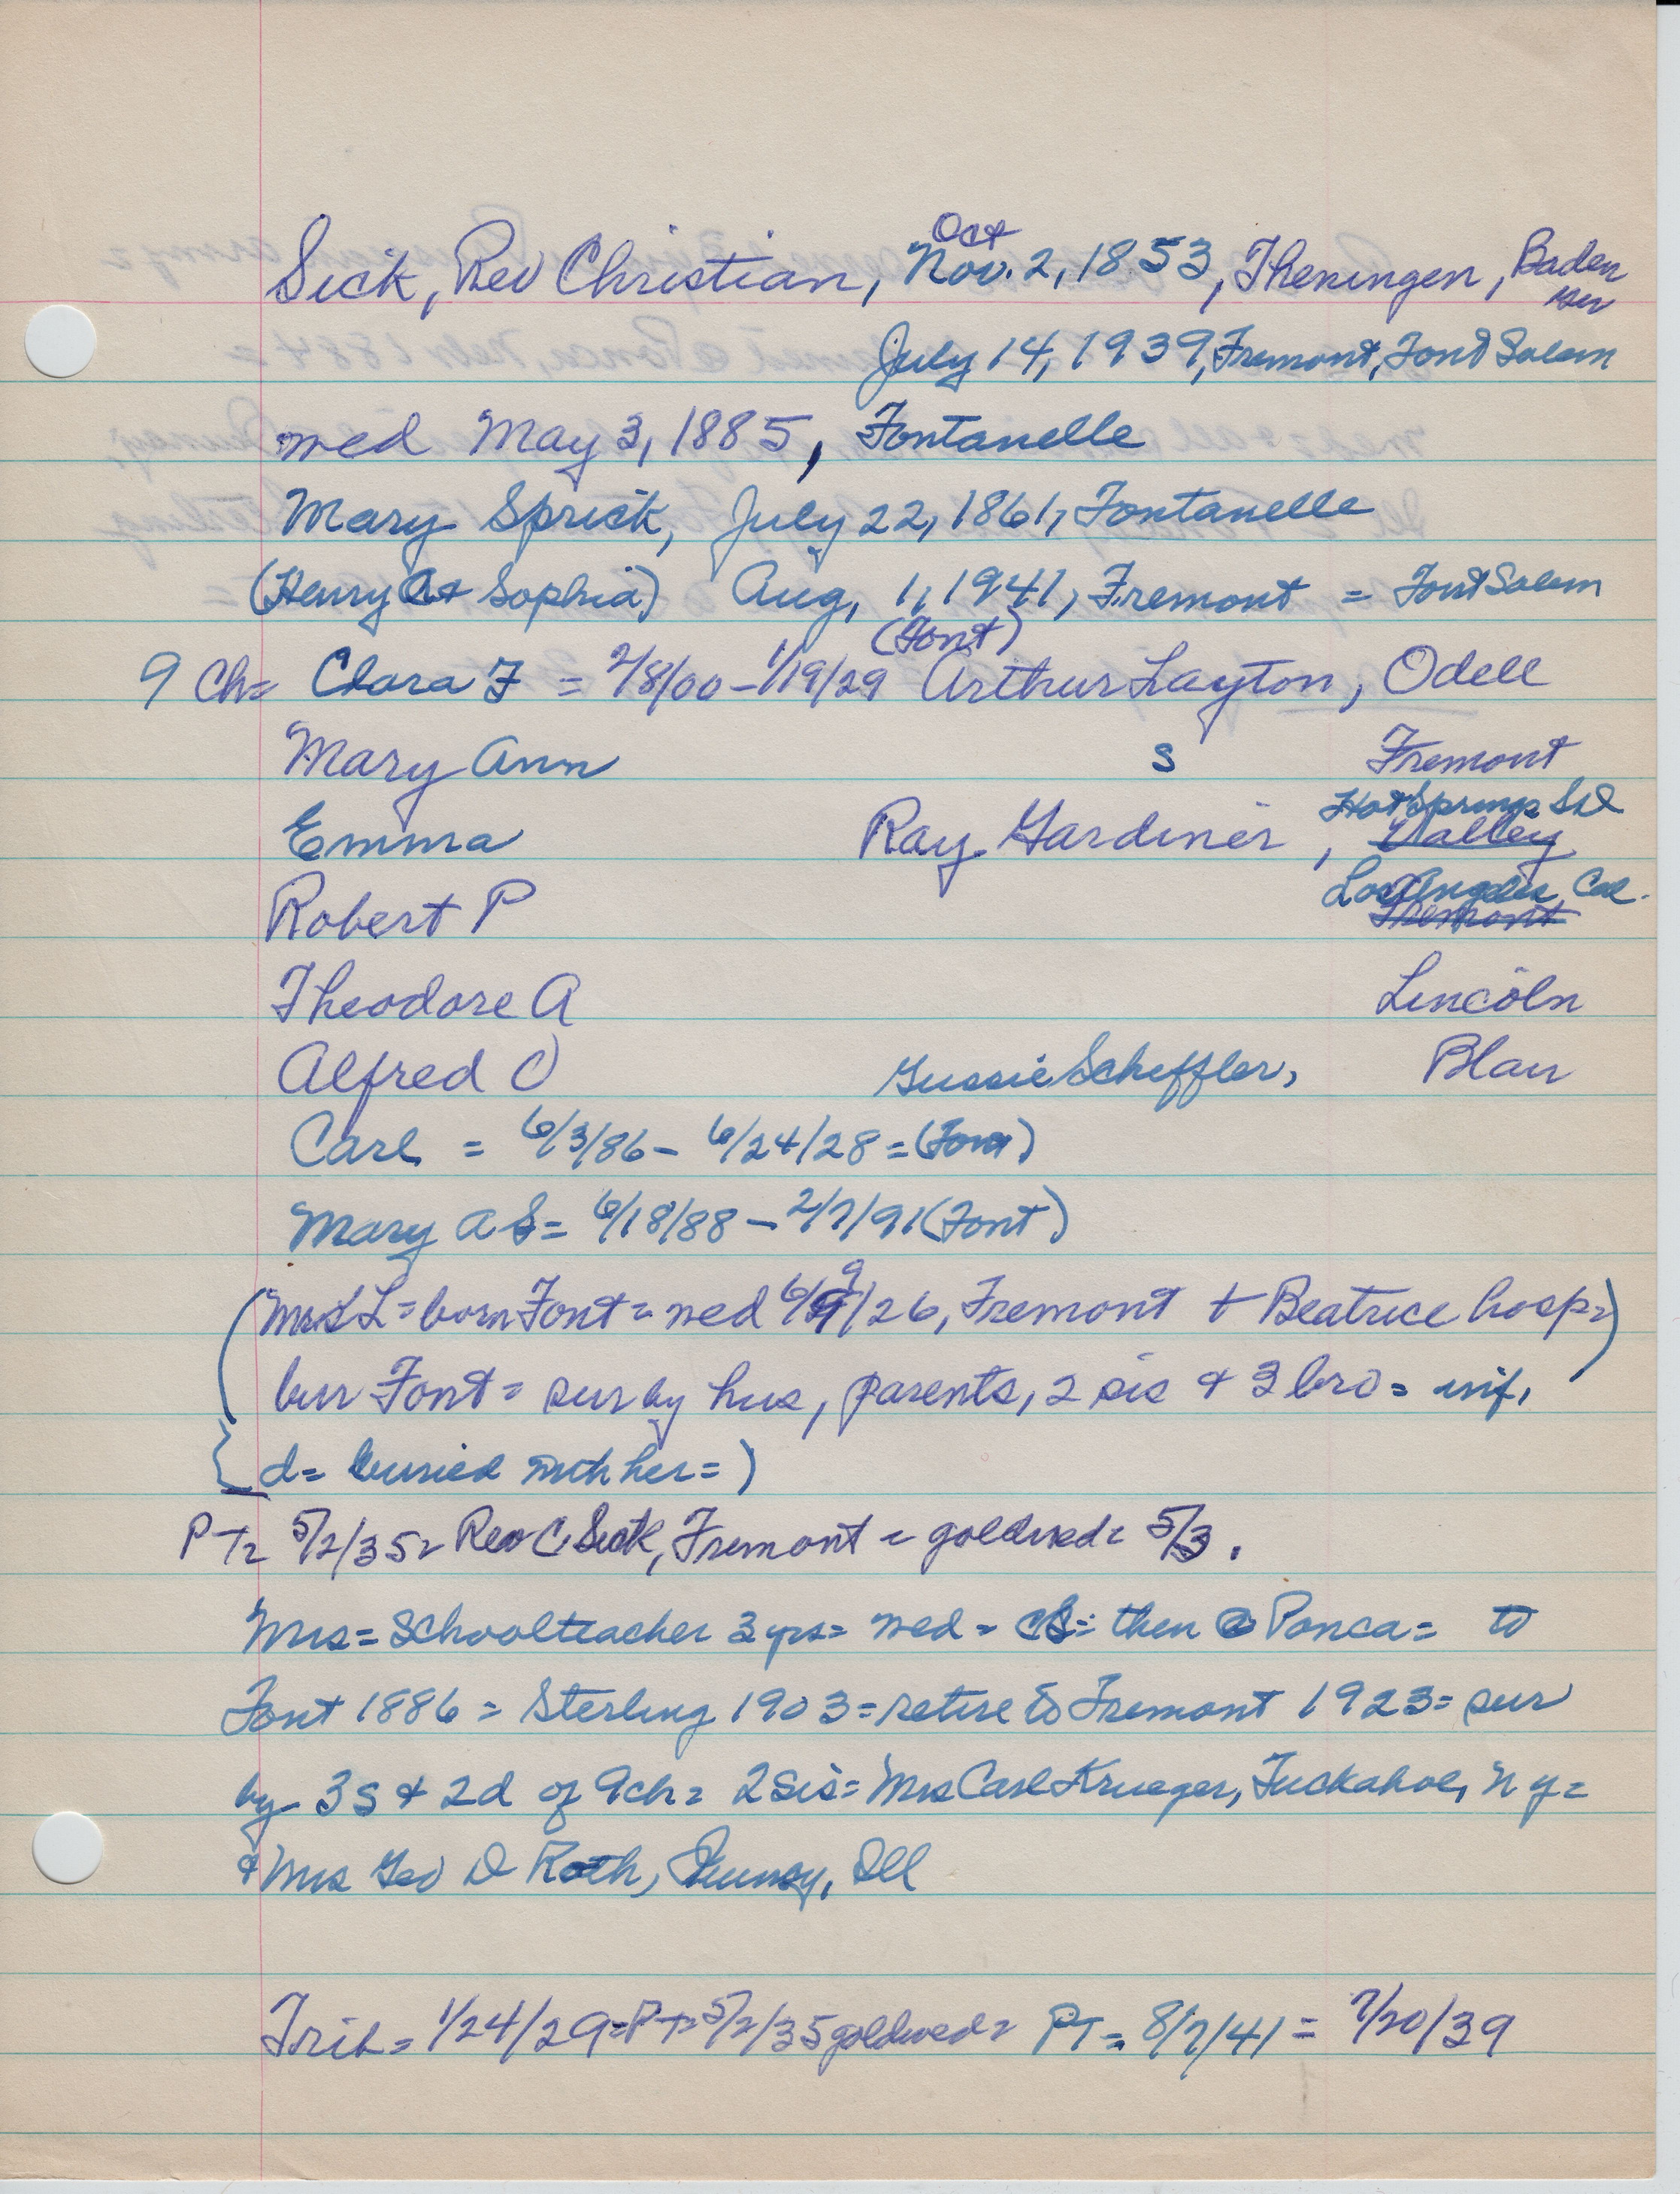 Oct
Sick, Rev Christian, Nov. 2, 1853, Theningen, Baden
Ger
July 14, 1939, Fremont, Font Salem
wed May 3, 1885, Fontanelle
Mary Sprick, July 22, 1861, Fontanelle
(Henry C + Sophia) Aug. 1, 1941, Fremont = Font Salem
(Font)
9 Ch= Clara F = 2/8/00 - 1/19/29 Arthur Layton, Odell
Mary Ann S Fremont
Hot Springs SD
Emma Ray Gardiner, Valley
Los Angeles Cal.
Robert P Fremont
Theodore A Lincoln
Alfred O Gussie Scheffler, Blair
Carl = 6/3/86 - 6/24/28 = (Font)
Mary A S = 6/18/88 - 2/7/91 (Font)
9
(Mrs L = born Font = wed 6/9/26, Fremont + Beatrice hosp =)
bur Font = sur by hus, parents, 2 sis + 3 bro = inf.
d = buried with her =)
PT= 5/2/35= Rev C Sick, Fremont = goldwed= 5/3.
Mrs = Schoolteacher 3 yrs = wed = CS = then @ Ponca = to
Font 1886 = Sterling 1903 = retire to Fremont 1923 = sur
by 3 s + 2 d of 9 ch = 2 sis = Mrs Carl Krueger, Tuckahoe, NY =
+ Mrs Geo D Roth, Quincy, Ill
Trib = 1/24/29 = PT= 5/2/35 goldwed = PT = 8/7/41 = 7/20/39